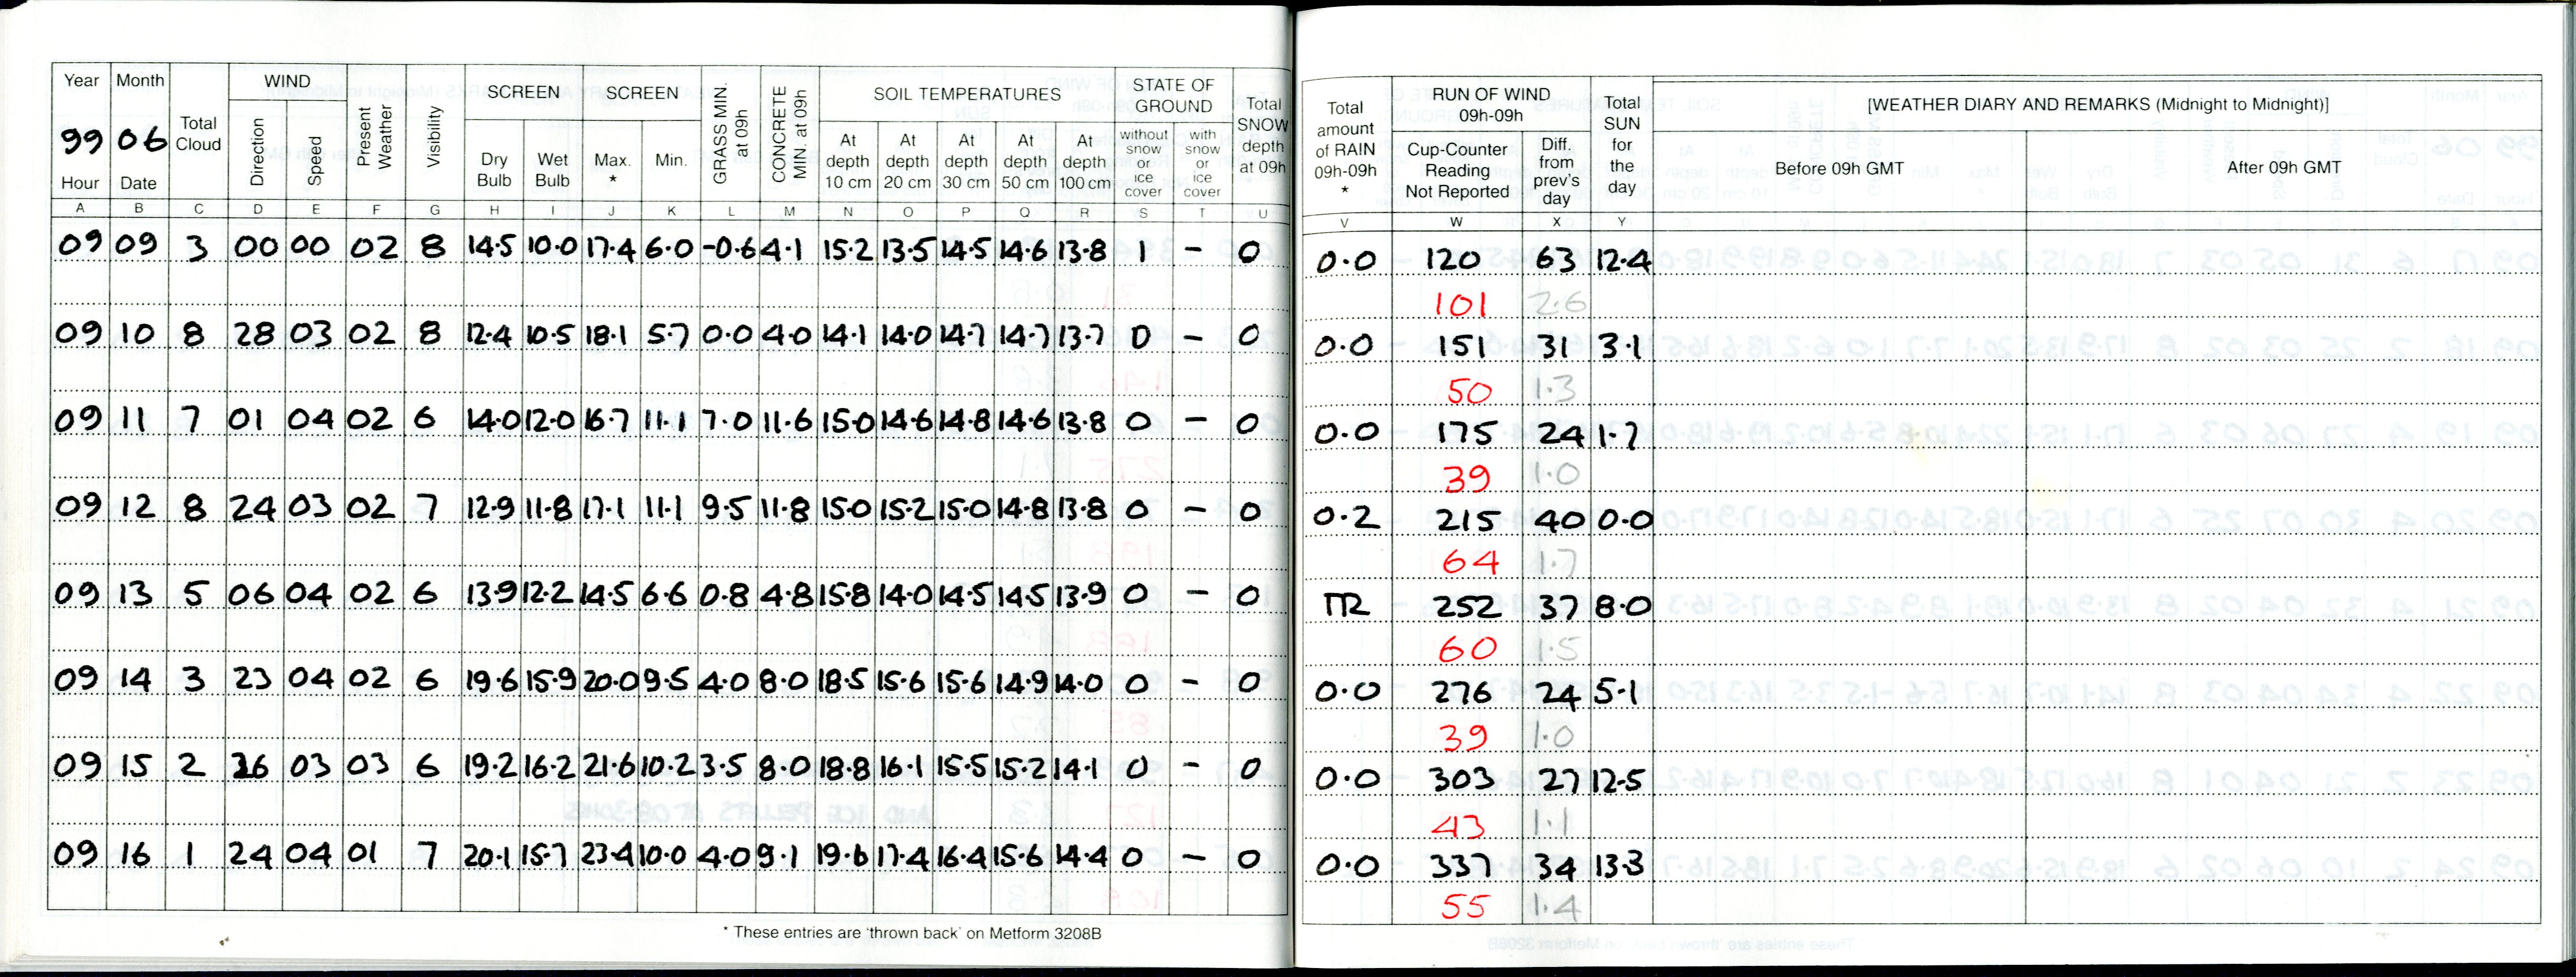 Year Month Total Cloud WIND Present Weather Visibility SCREEN SCREEN GRASS MIN. at 09h CONCRETE MIN. at 09h SOIL TEMPERATURES STATE OF GROUND Total SNOW depth at 09h Total amount of RAIN 09h-09h * RUN OF WIND 09h-09h Total SUN for the day [WEATHER DIARY AND REMARKS (Midnight to Midnight)]
99 06 Direction Speed Dry Bulb Wet Bulb Max. * Min. At depth 10 cm At depth 20 cm At depth 30 cm At depth 50 cm At depth 100 cm without snow or ice cover with snow or ice cover Cup-Counter Reading Not Reported Diff. from prev's day Before 09h GMT After 09h GMT
Hour Date
A B C D E F G H I J K L M N O P Q R S T U V W X Y
09 09 3 00 00 02 8 14.5 10.0 17.4 6.0 -0.6 4.1 15.2 13.5 14.5 14.6 13.8 1 - 0 0.0 120 63 12.4
101 2.6
09 10 8 28 03 02 8 12.4 10.5 18.1 5.7 0.0 4.0 14.1 14.0 14.7 14.7 13.7 0 - 0 0.0 151 31 3.1
50 1.3
09 11 7 01 04 02 6 14.0 12.0 16.7 11.1 7.0 11.6 15.0 14.6 14.8 14.6 13.8 0 - 0 0.0 175 24 1.7
39 1.0
09 12 8 24 03 02 7 12.9 11.8 17.1 11.1 9.5 11.8 15.0 15.2 15.0 14.8 13.8 0 - 0 0.2 215 40 0.0
64 1.7
09 13 5 06 04 02 6 13.9 12.2 14.5 6.6 0.8 4.8 15.8 14.0 14.5 14.5 13.9 0 - 0 TR 252 37 8.0
60 1.5
09 14 3 23 04 02 6 19.6 15.9 20.0 9.5 4.0 8.0 18.5 15.6 15.6 14.9 14.0 0 - 0 0.0 276 24 5.1
39 1.0
09 15 2 36 03 03 6 19.2 16.2 21.6 10.2 3.5 8.0 18.8 16.1 15.5 15.2 14.1 0 - 0 0.0 303 27 12.5
43 1.1
09 16 1 24 04 01 7 20.1 15.7 23.4 10.0 4.0 9.1 19.6 17.4 16.4 15.6 14.4 0 - 0 0.0 337 34 13.3
55 1.4
* These entries are 'thrown back' on Metform 3208B